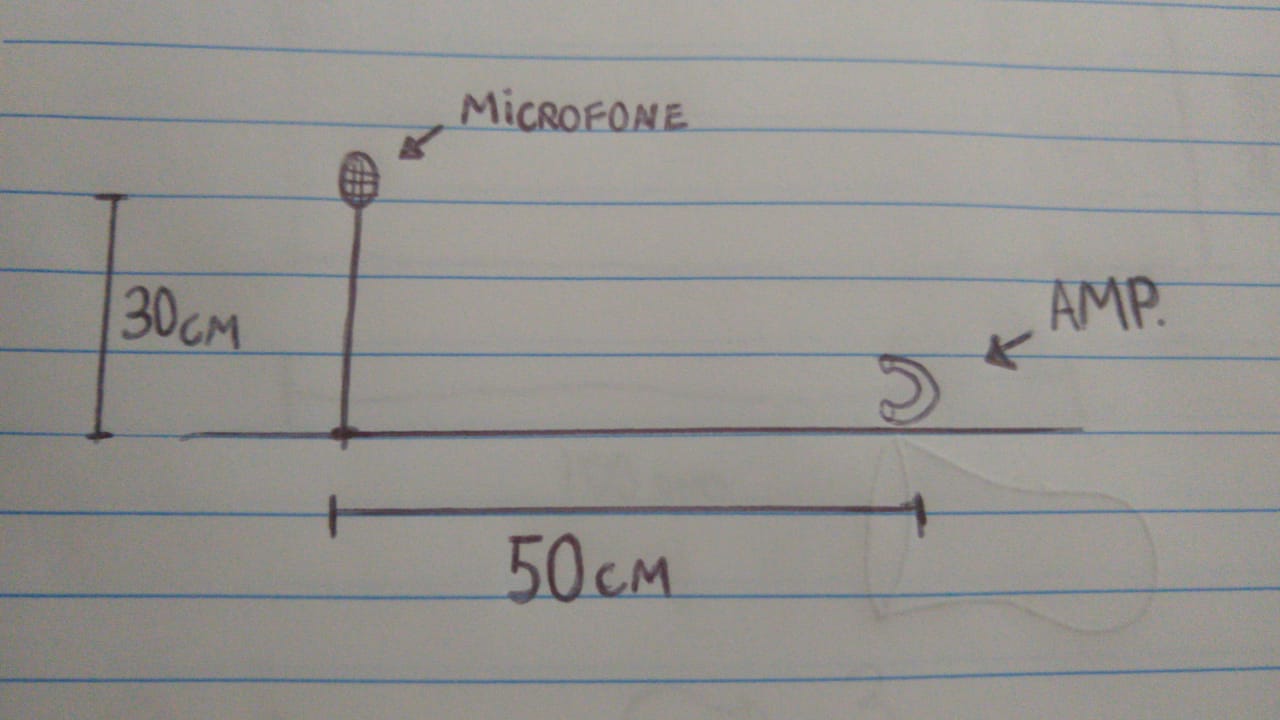 MiCROFONE
30cm
AMP.
50cm